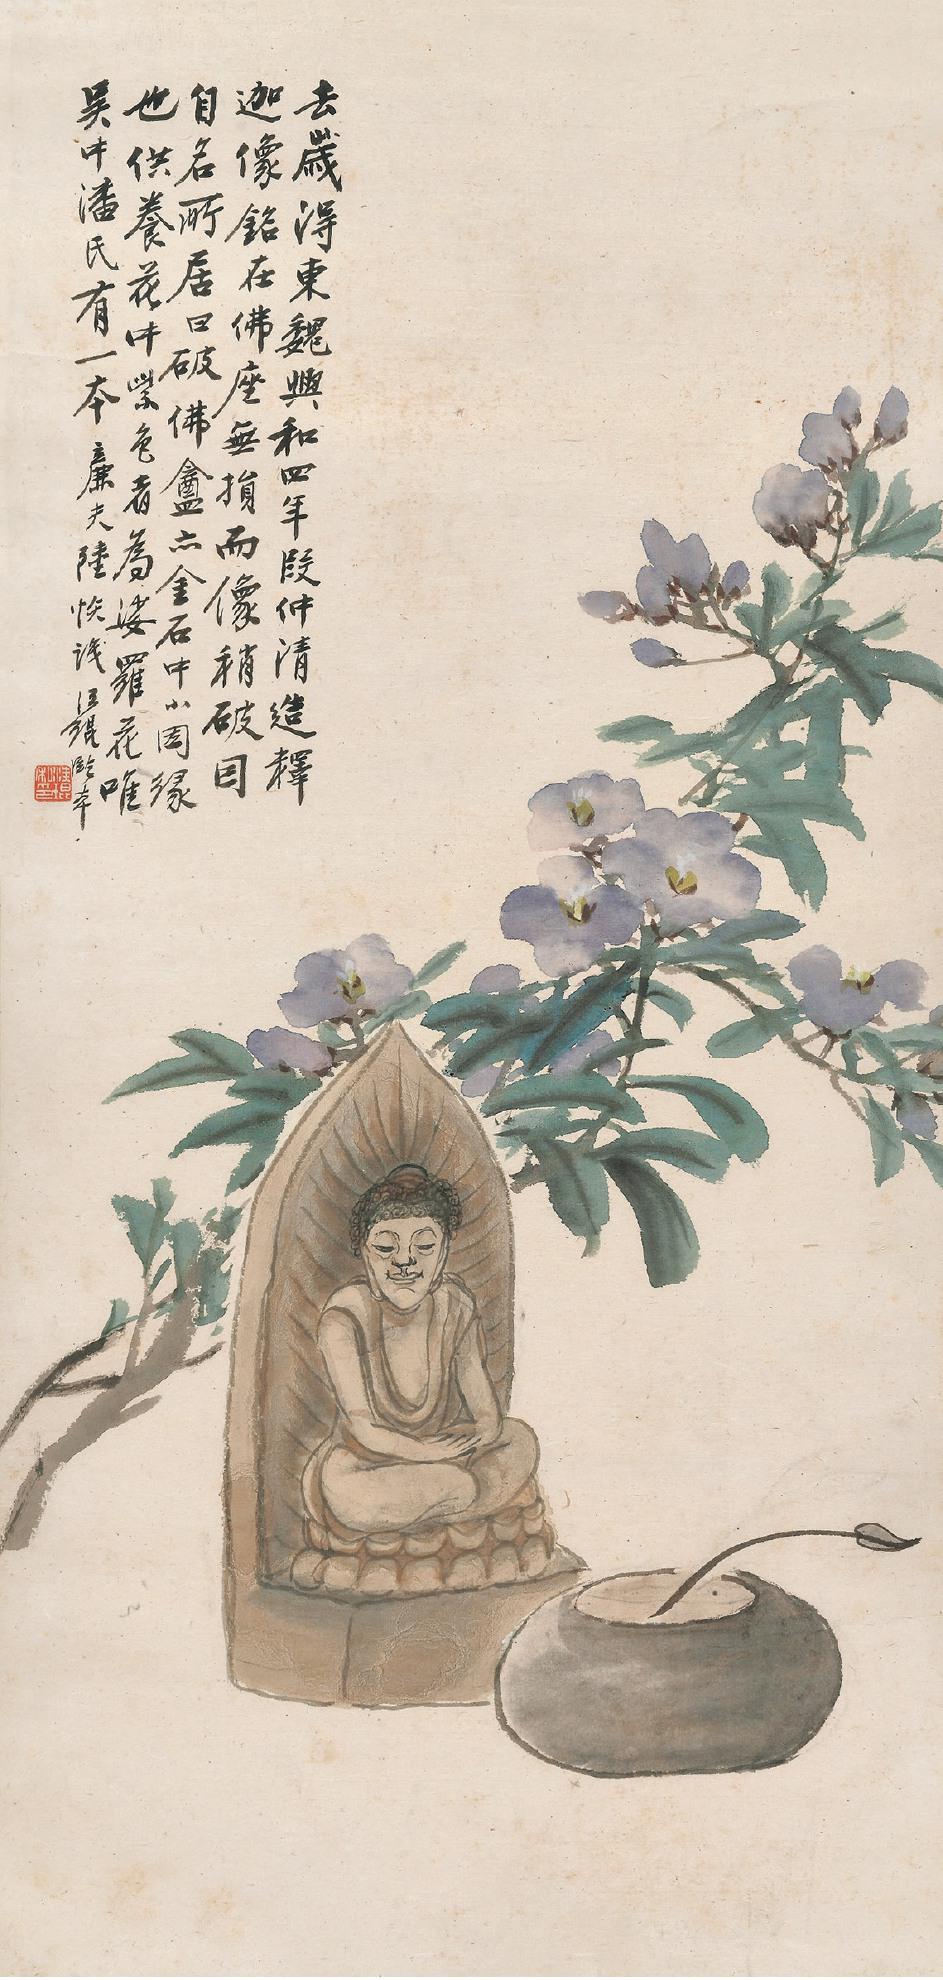 去歲得東魏興和四年段仲清造釋
迦像銘在佛座無損而像稍破因
自名所居曰破佛龕亦金石中小因緣
也供養花中紫色者為娑羅花唯
吳中潘氏有一本廉夫陸恢識汪鋆臨本